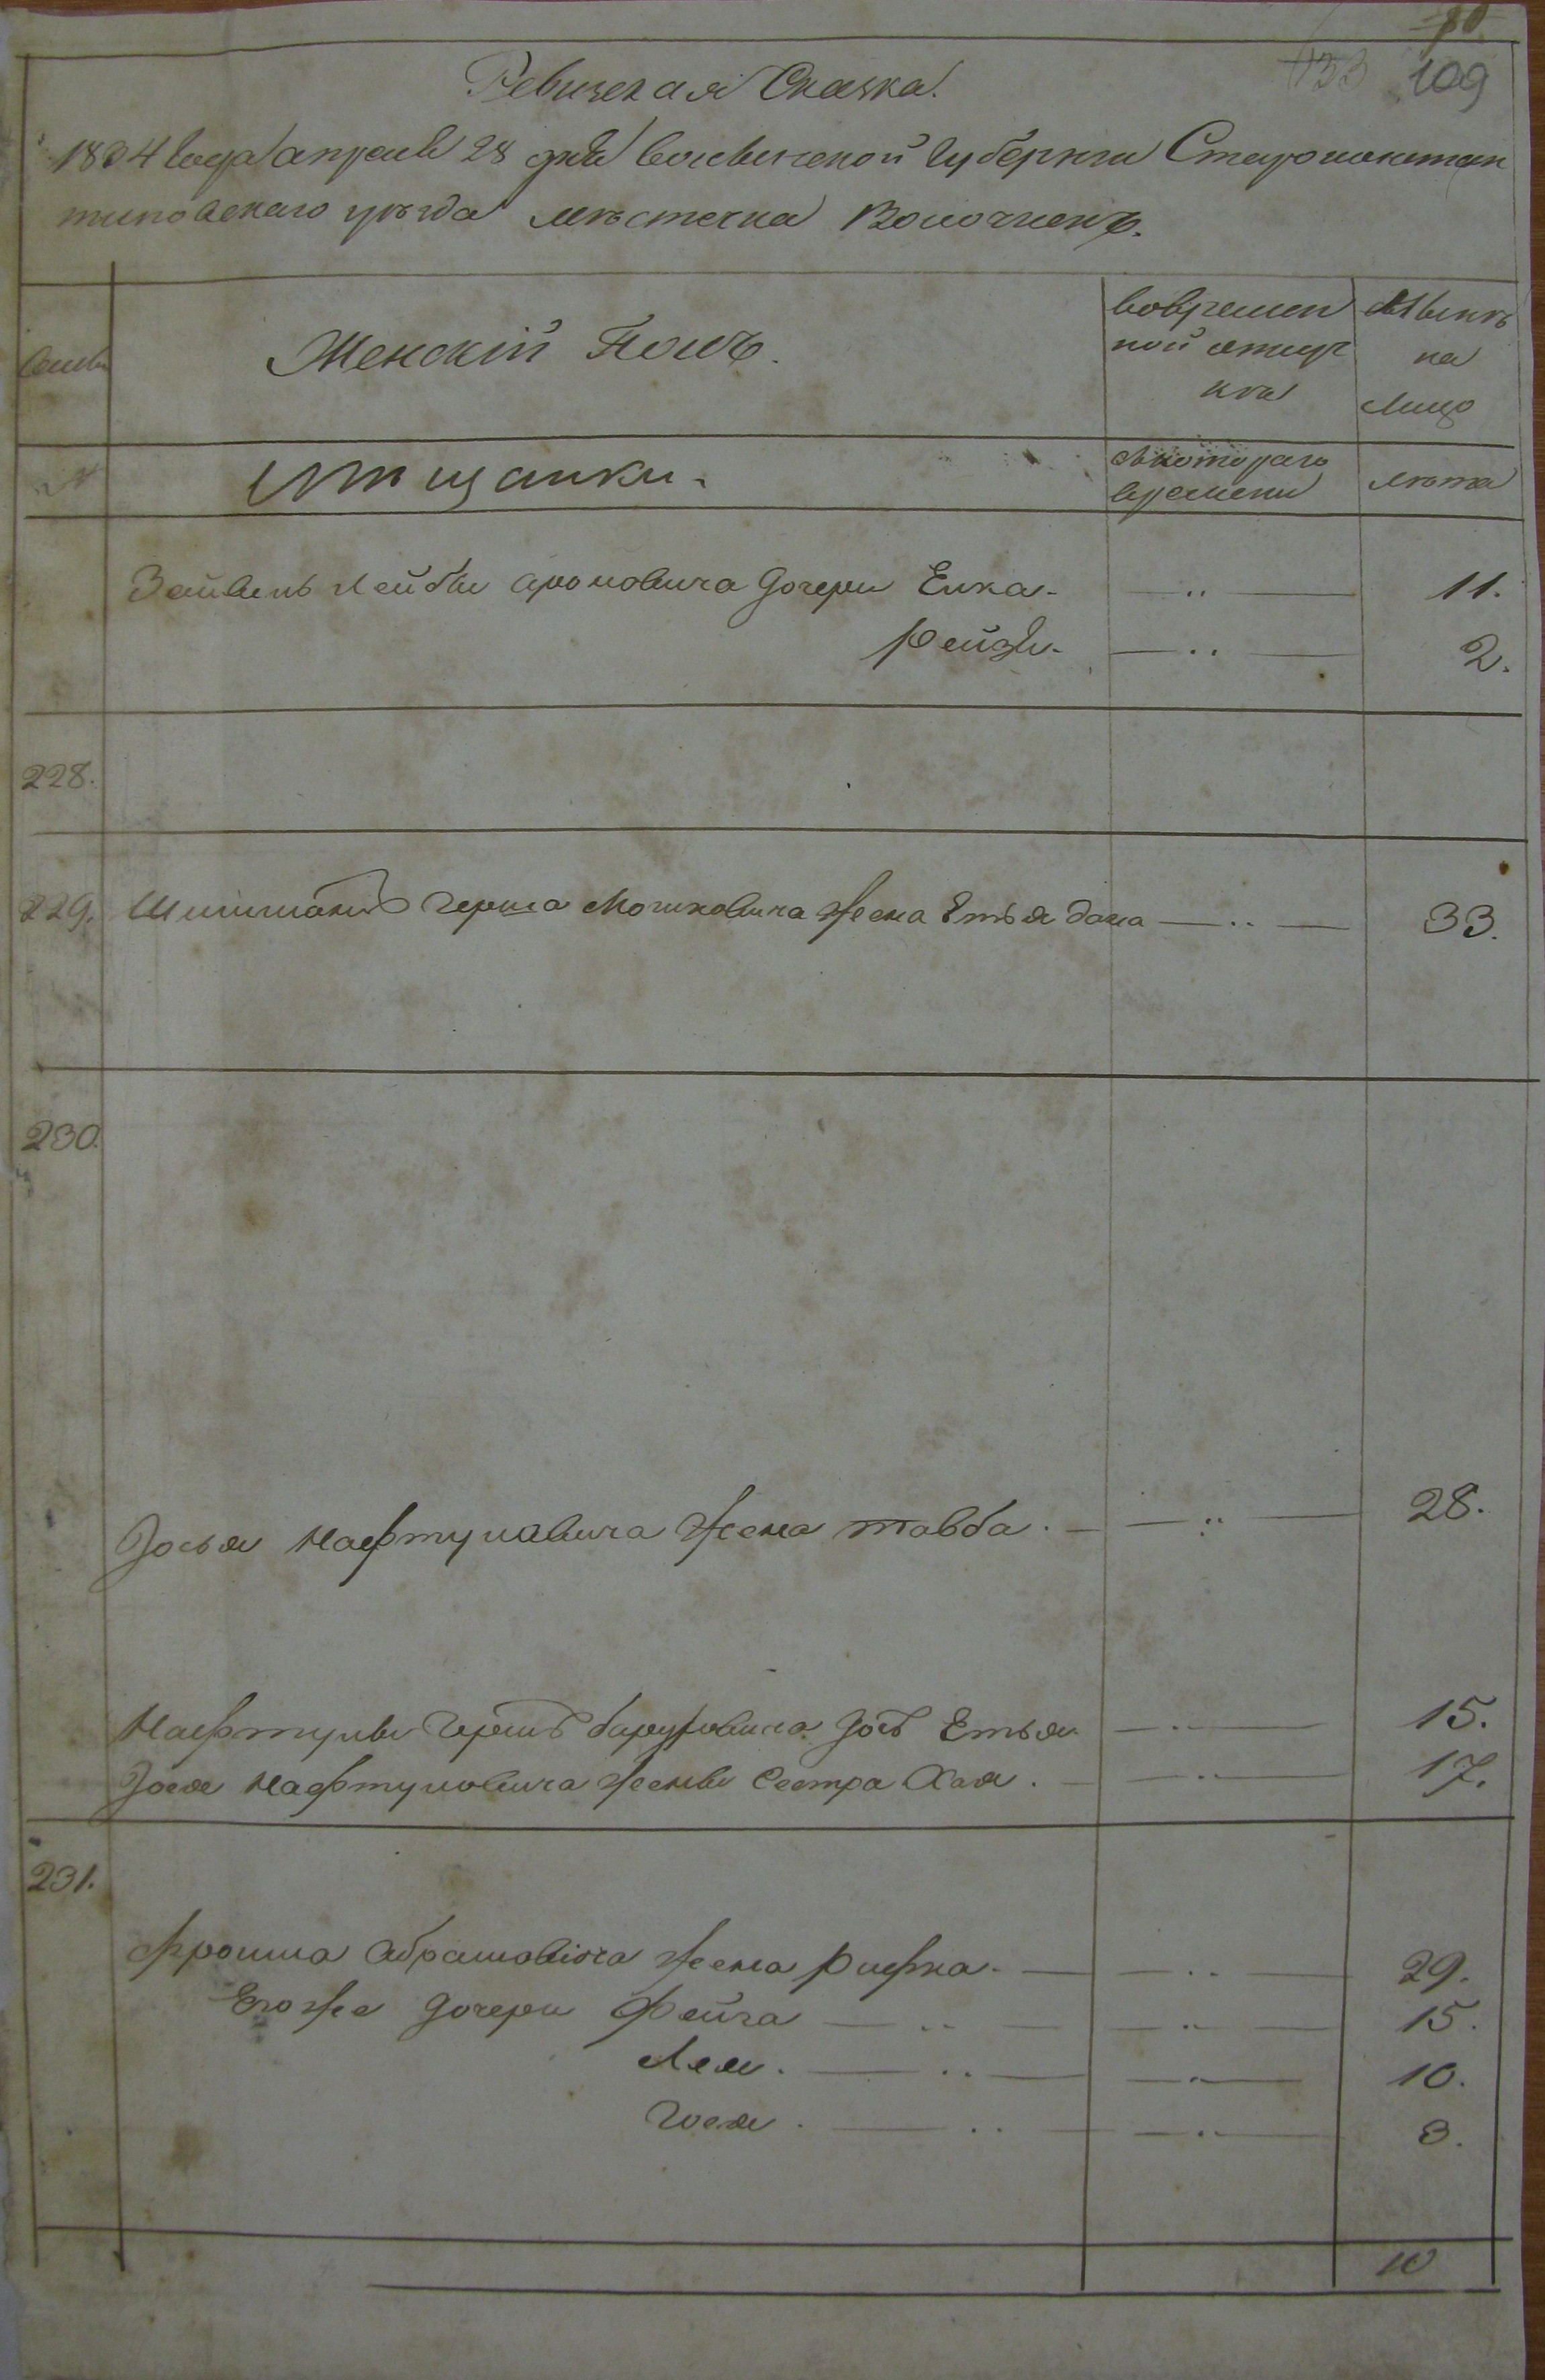 80
133 109
Ревизская Сказка.
1834 года апреля 28 дня волынской губернии Староконстан
тиновскаго уезда местечка Волочискъ.
Семьи
Женскій Полъ.
вовремен
ной отлуч
ке
Ныне
на
Лицо
№
Мещанки.
Скотораго
времени
лета
Зейвель Лейбы Ароновича дочери Еика. — ,, — 11.
Рейзя. — ,, — 2.
228.
229. Шпильманъ Герша Мошковича жена Етья Дана — ,, — 33.
230.
Іосья Нафтуловича жена тавба. — ,, — 28.
Нафтулы Гершъ баруховича дочь Етья — ,, — 15.
Іося Нафтуловича жены Сестра Хая. — ,, — 17.
231.
Фроима Абрамовича жена Рифка. — ,, — 29.
Егоже дочери Фейга — ,, — — ,, — 15.
Лея. — ,, — — ,, — 10.
Гося. — ,, — — ,, — 3.
10